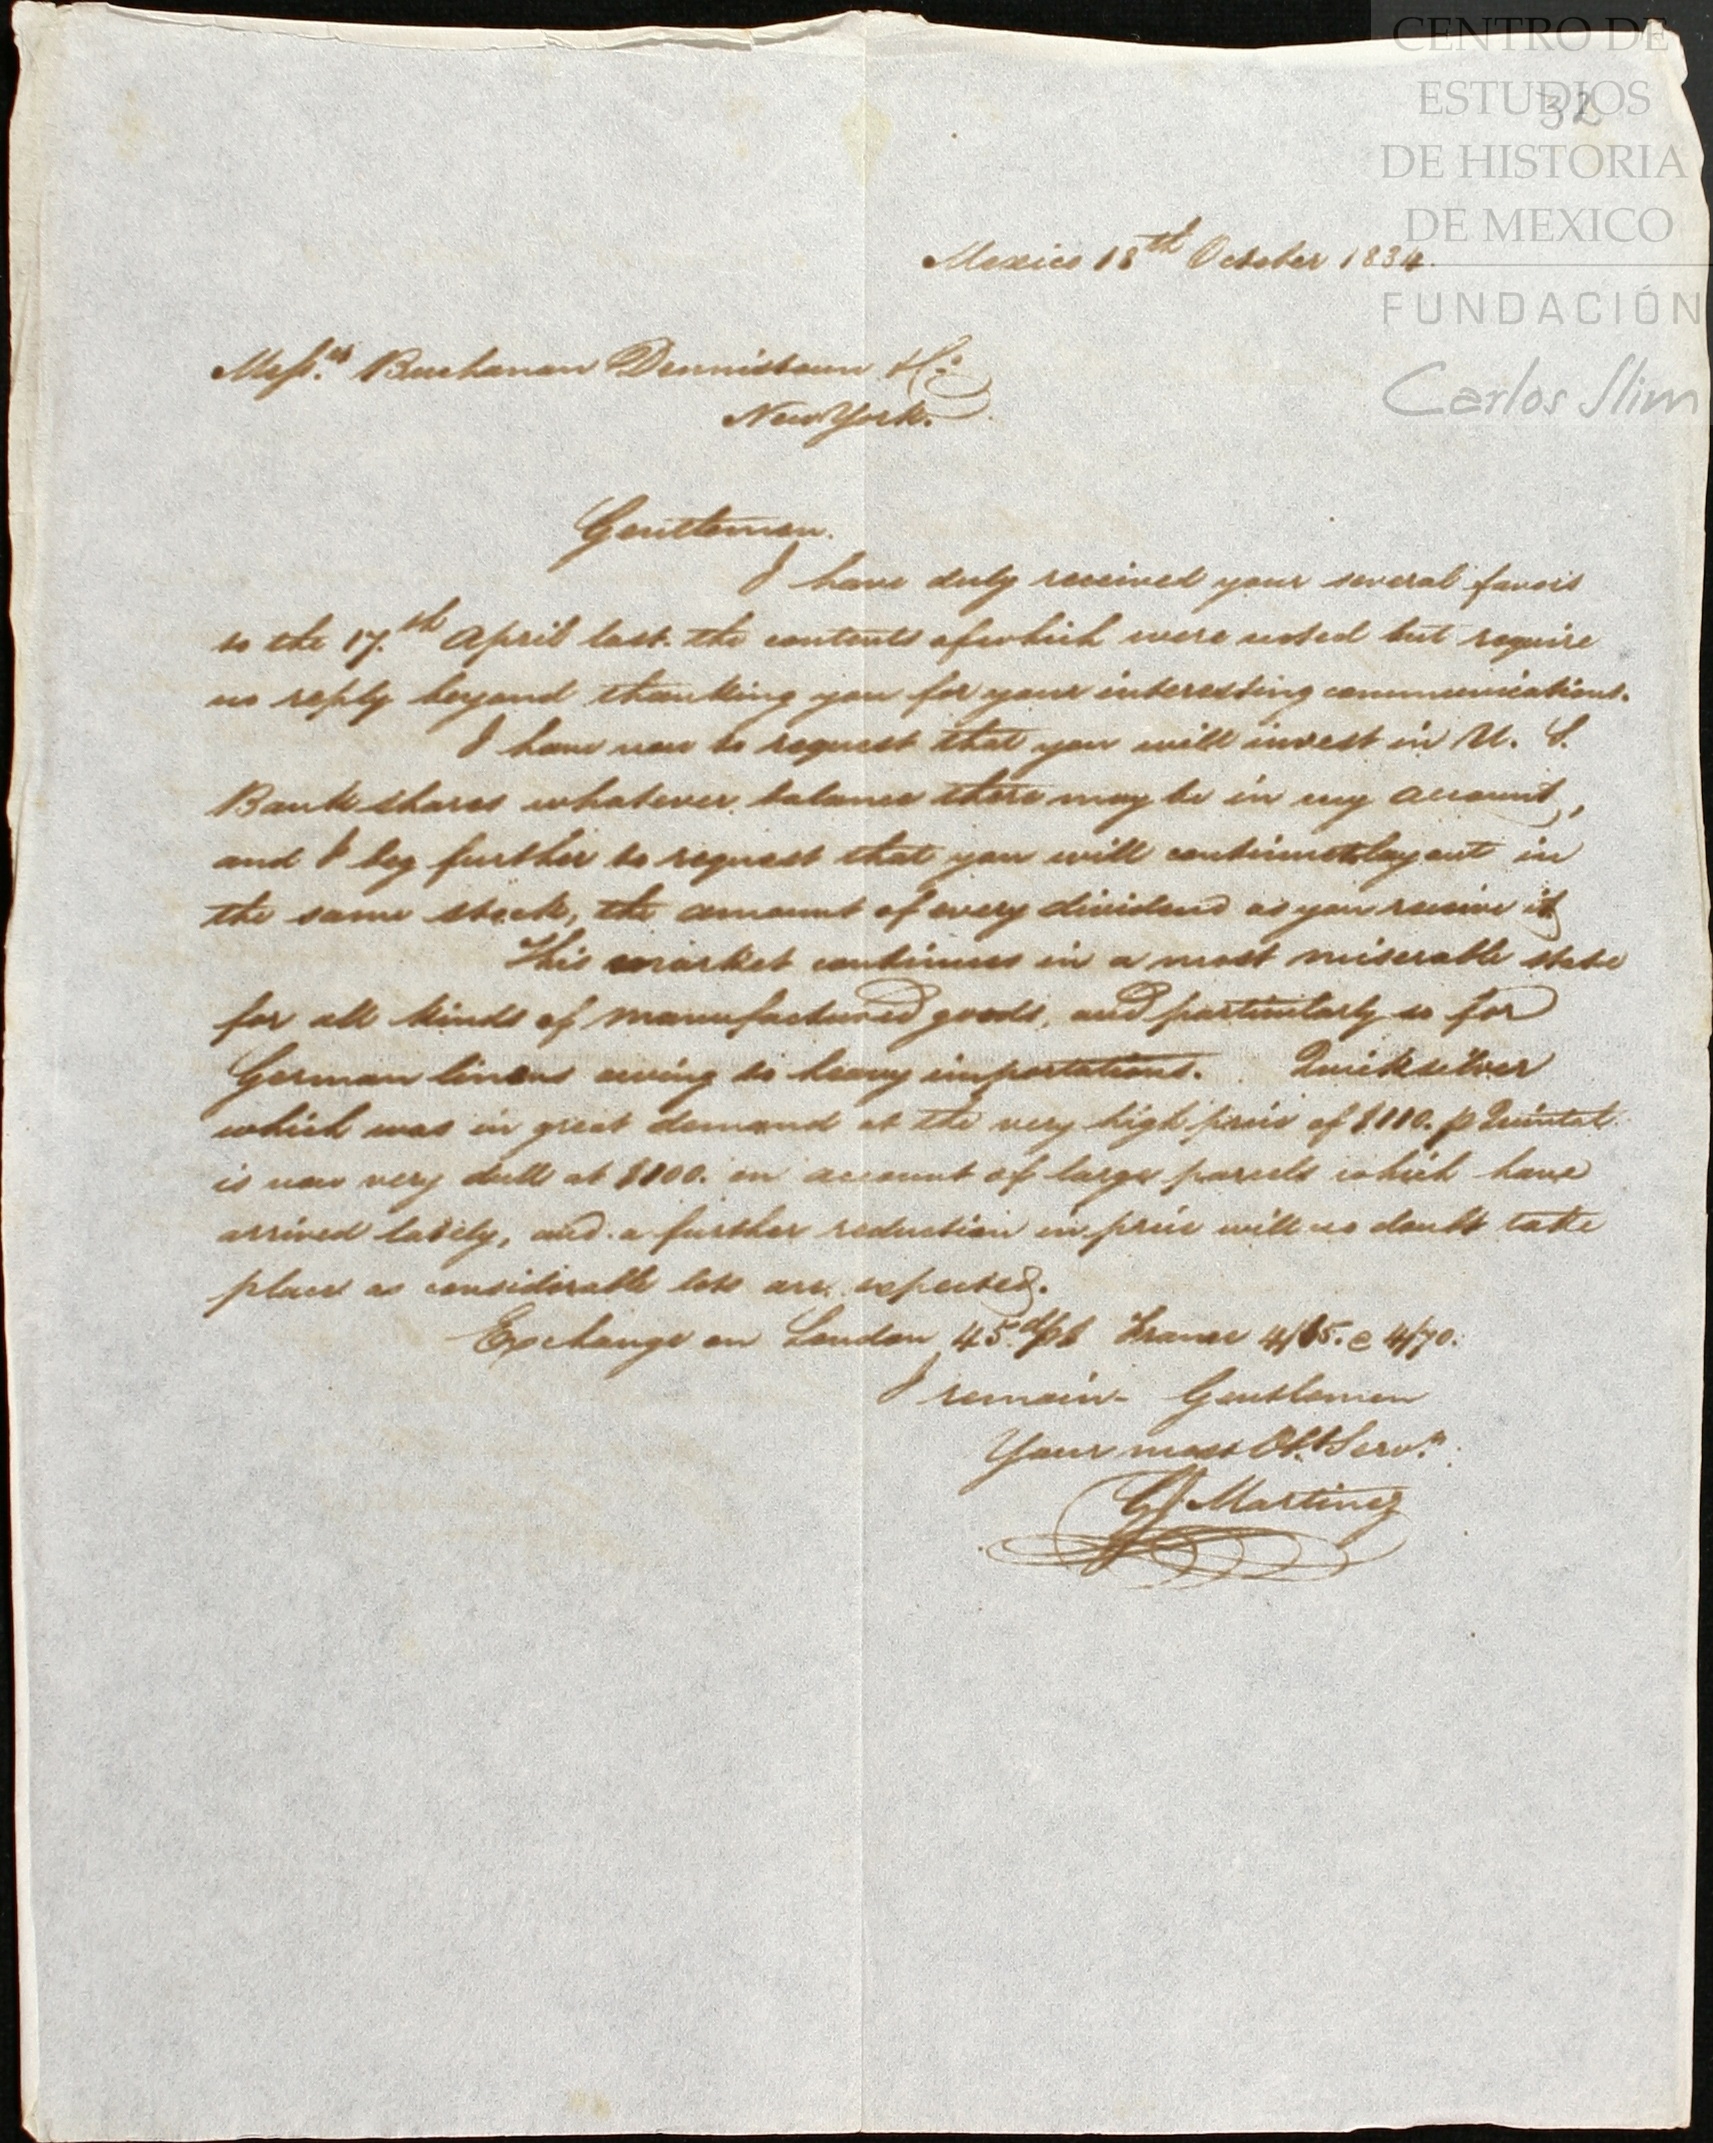 CENTRO DE
ESTUDIOS
32
DE HISTORIA
DE MEXICO
FUNDACIÓN
Carlos Slim
Mexico 18th October 1834.
Messrs. Buchanan Dennistoun & Co.
New York.
Gentlemen.
I have duly received your several favors
to the 17th April last. the contents of which were noted but require
no reply beyond thanking you for your interesting communications.
I have now to request that you will invest in U. S.
Bank shares whatever balance there may be in my account,
and I beg further to request that you will continue to lay out in
the same stock, the amount of every dividend as you receive it
This market continues in a most miserable state
for all kinds of manufactured goods, and particularly so for
German linens owing to heavy importations. Quicksilver
which was in great demand at the very high price of $110. p Quintal
is now very dull at $100. on account of large parcels which have
arrived lately, and a further reduction in price will no doubt take
place as considerable lots are expected.
Exchange on London 45 France 4/65. @ 4/70.
I remain - Gentlemen
Your most Obt. Servt.
Martinez